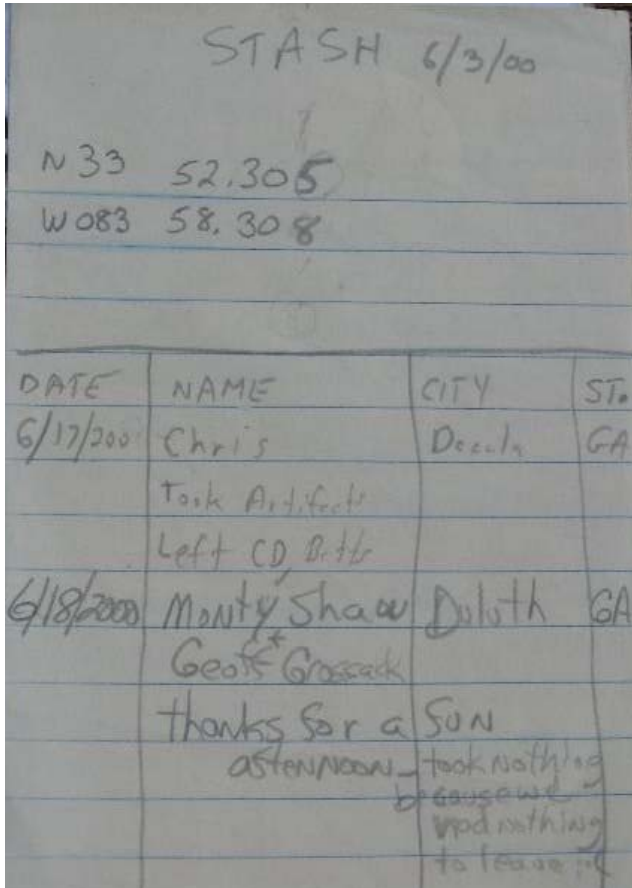 STASH 6/3/00
N33 52.305
W083 58.308
DATE NAME CITY ST.
6/17/200 Chris GA
Took Artifacts
Left CD,
6/18/2000 Monty Shaw Duluth GA
Geoff Grossack
thanks for a SUN
afternnoon - took nothing
because we
had nothing
to leave